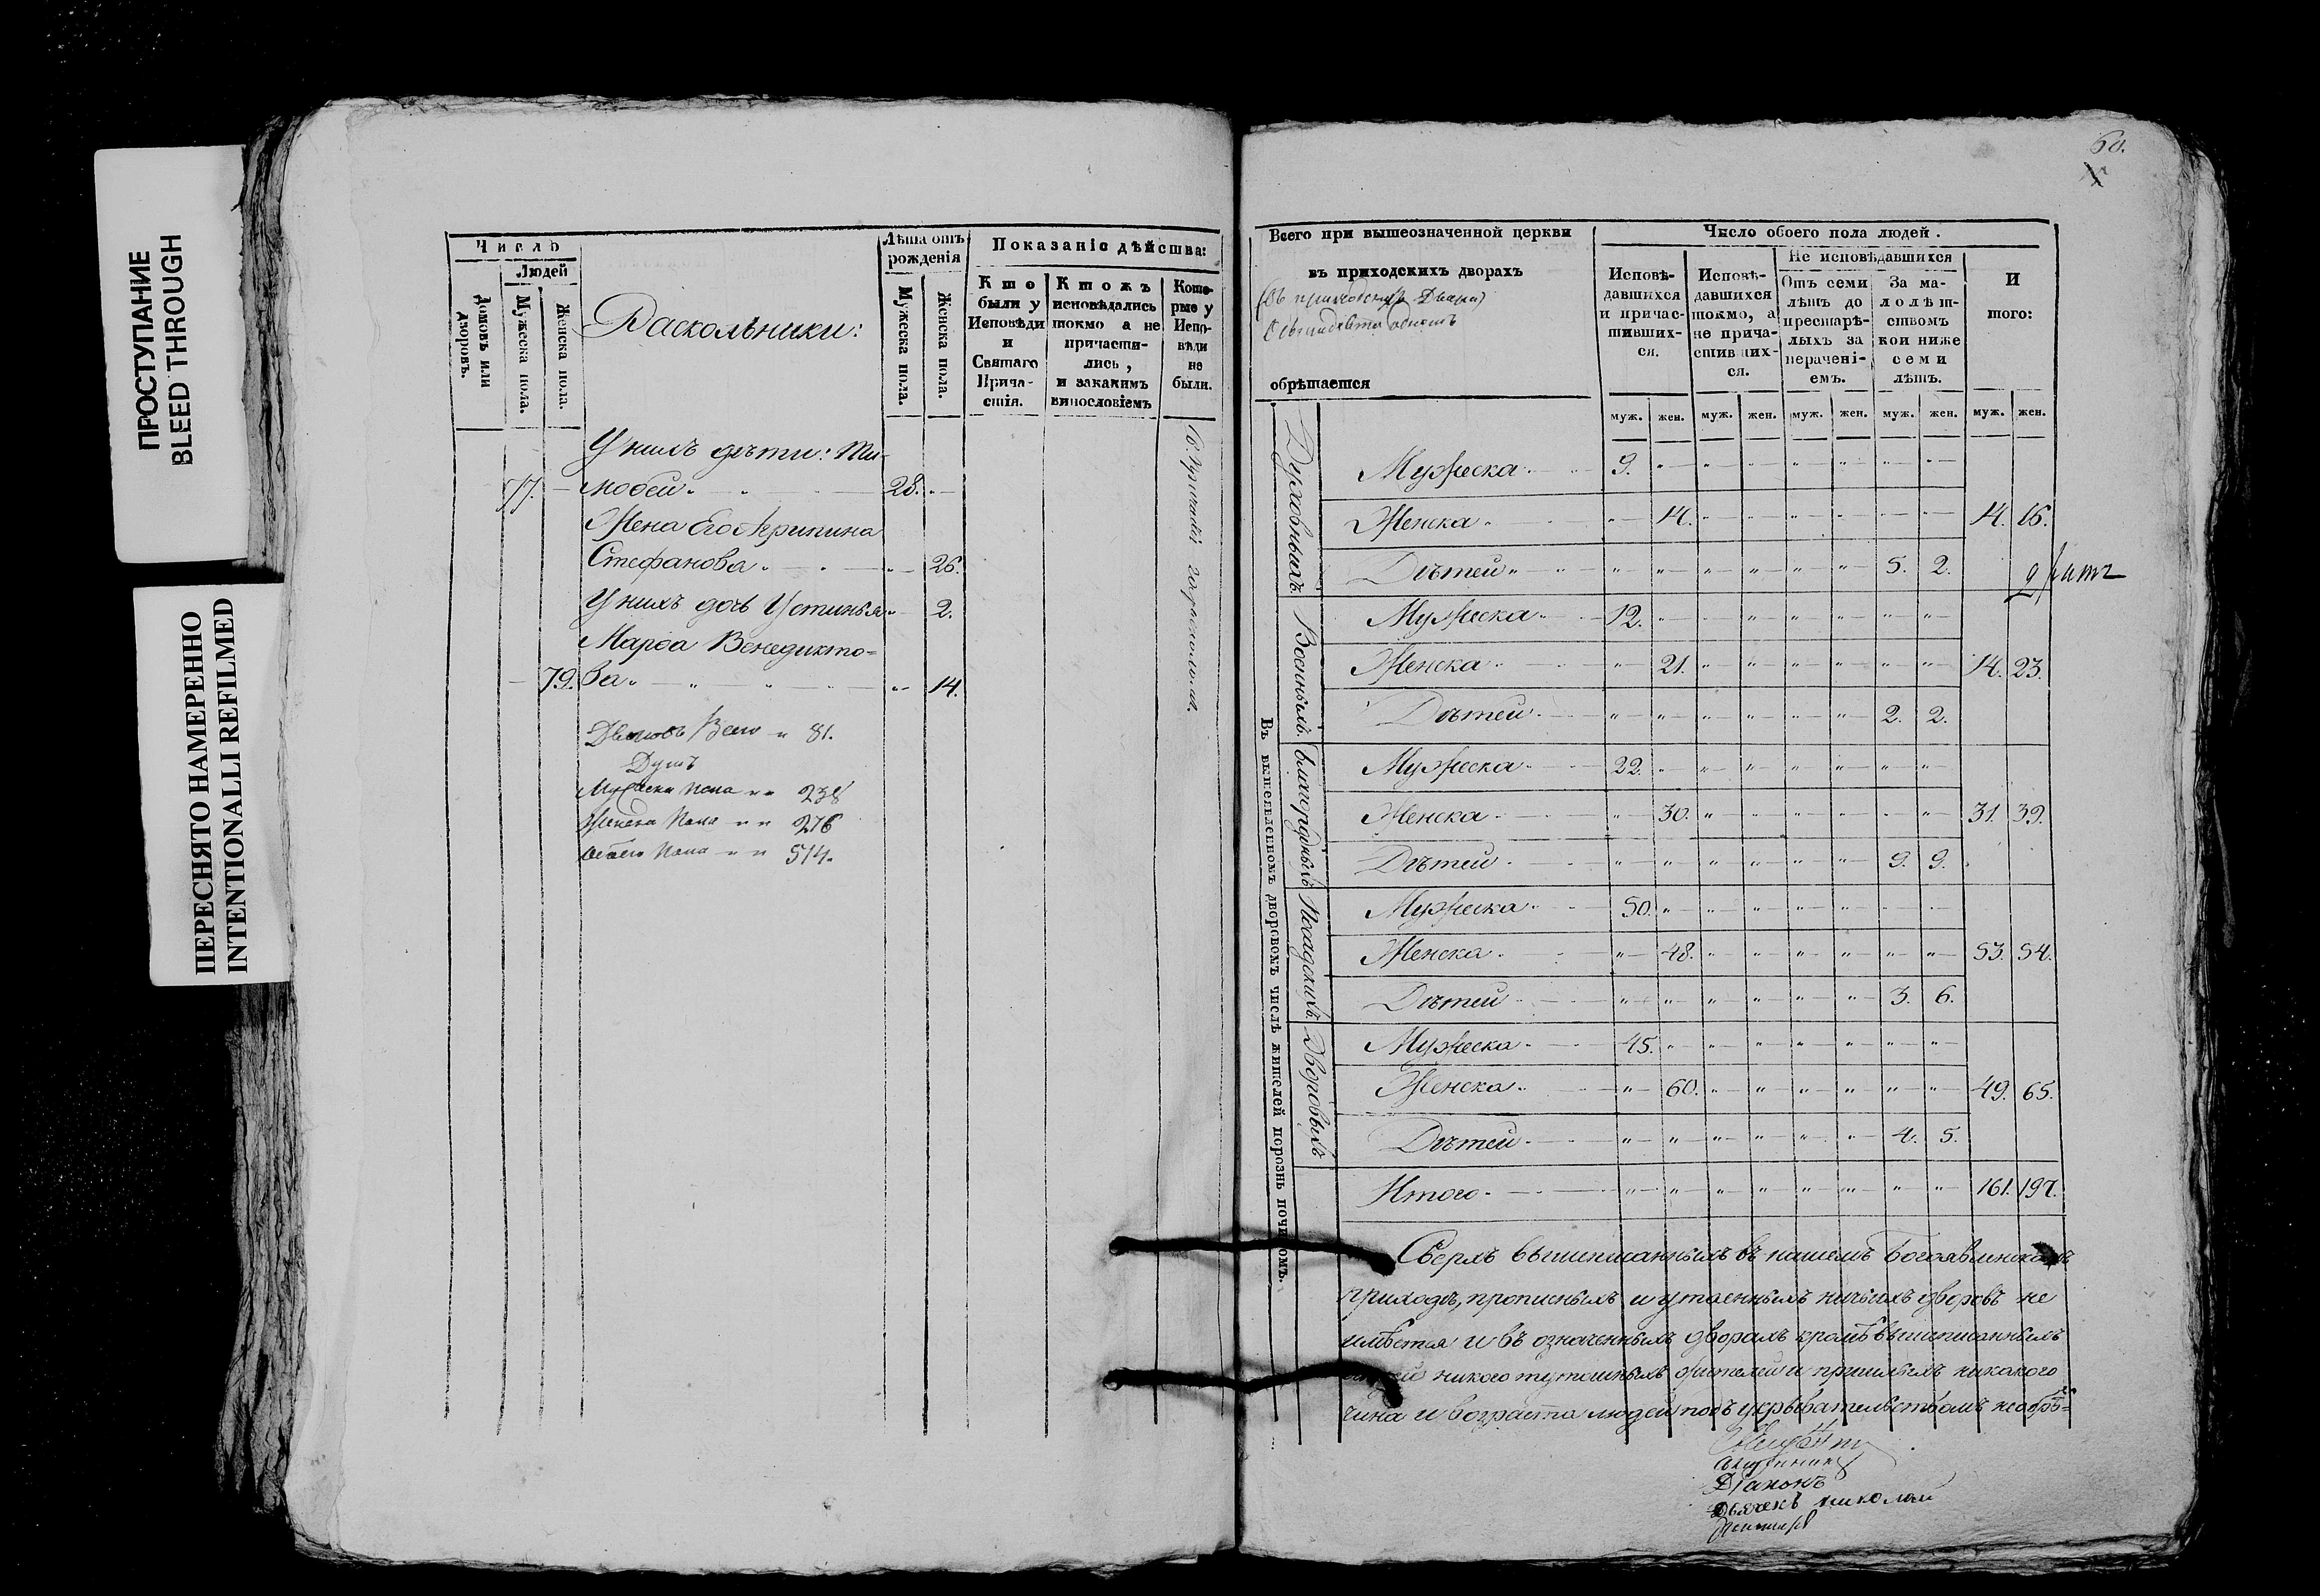 ПРОСТУПАНИЕ
BLEED THROUGH
ПЕРЕСНЯТО НАМЕРЕННО
INTENTIONALLI REFILMED
Число
Людей
Домовъ или дворовъ.
Мужеска пола.
Женска пола.
Раскольники:
Лѣта отъ рожденія
Мужеска пола.
Женска пола.
Показаніе дѣйства:
Кто были у Исповѣди и Святаго Прича-стія.
Ктожъ исповѣдались токмо а не причасти-лись, и закакимъ винословіемъ
Кото-рые у Испо-вѣди не были.
У нихъ дѣти: Ти-
77. мовей 28.
Жена Его Агрипина
Стефанова 26.
У нихъ дочь Устинья 2.
Марѳа Венедикто=
79. ва 14.
Дворовъ Всего 81.
Душъ
Мужеска пола 238
Женска пола 276
Обоего пола 514.
60.
Всего при вышеозначенной церкви
въ приходскихъ дворахъ
обрѣтается
Число обоего пола людей.
Исповѣ-давшихся и причас-тивших-ся.
Исповѣ-давшихся токмо, а не прича-стивших-ся.
Не исповѣдавшихся
Отъ семи лѣтъ до престарѣ-лыхъ за нерачені-емъ.
За ма-лолѣт-ствомъ кои ниже семи лѣтъ.
И того:
муж. жен. муж. жен. муж. жен. муж. жен. муж. жен.
Въ вышеявленномъ дворовомъ числѣ жителей порознь почи омъ.
Духовныхъ
Мужеска 9.
Женска 14. 14. 16.
Дѣтей 5. 2.
Военныхъ
Мужеска 12.
Женска 21. 14. 23.
Дѣтей 2. 2.
Благородныхъ
Мужеска 22.
Женска 30. 31. 39.
Дѣтей 9. 9.
Посадскихъ
Мужеска 50.
Женска 48. 53. 54.
Дѣтей 3. 6.
Дворовыхъ
Мужеска 45.
Женска 60. 49. 65.
Дѣтей 4. 5.
Итого 161. 197.
Сверхъ вышеписанныхъ въ нашемъ Богоявленскомъ
приходѣ, прописныхъ и утаенныхъ ничьихъ дворовъ не
имѣется и въ означенныхъ дворахъ кромѣ вышеписанныхъ
никого тутошныхъ жителей и пришлыхъ никакого
чина и возраста людей подъ укрывательствомъ необрѣ=
Священникъ
Діаконъ
Дьячекъ николай
Пономарь